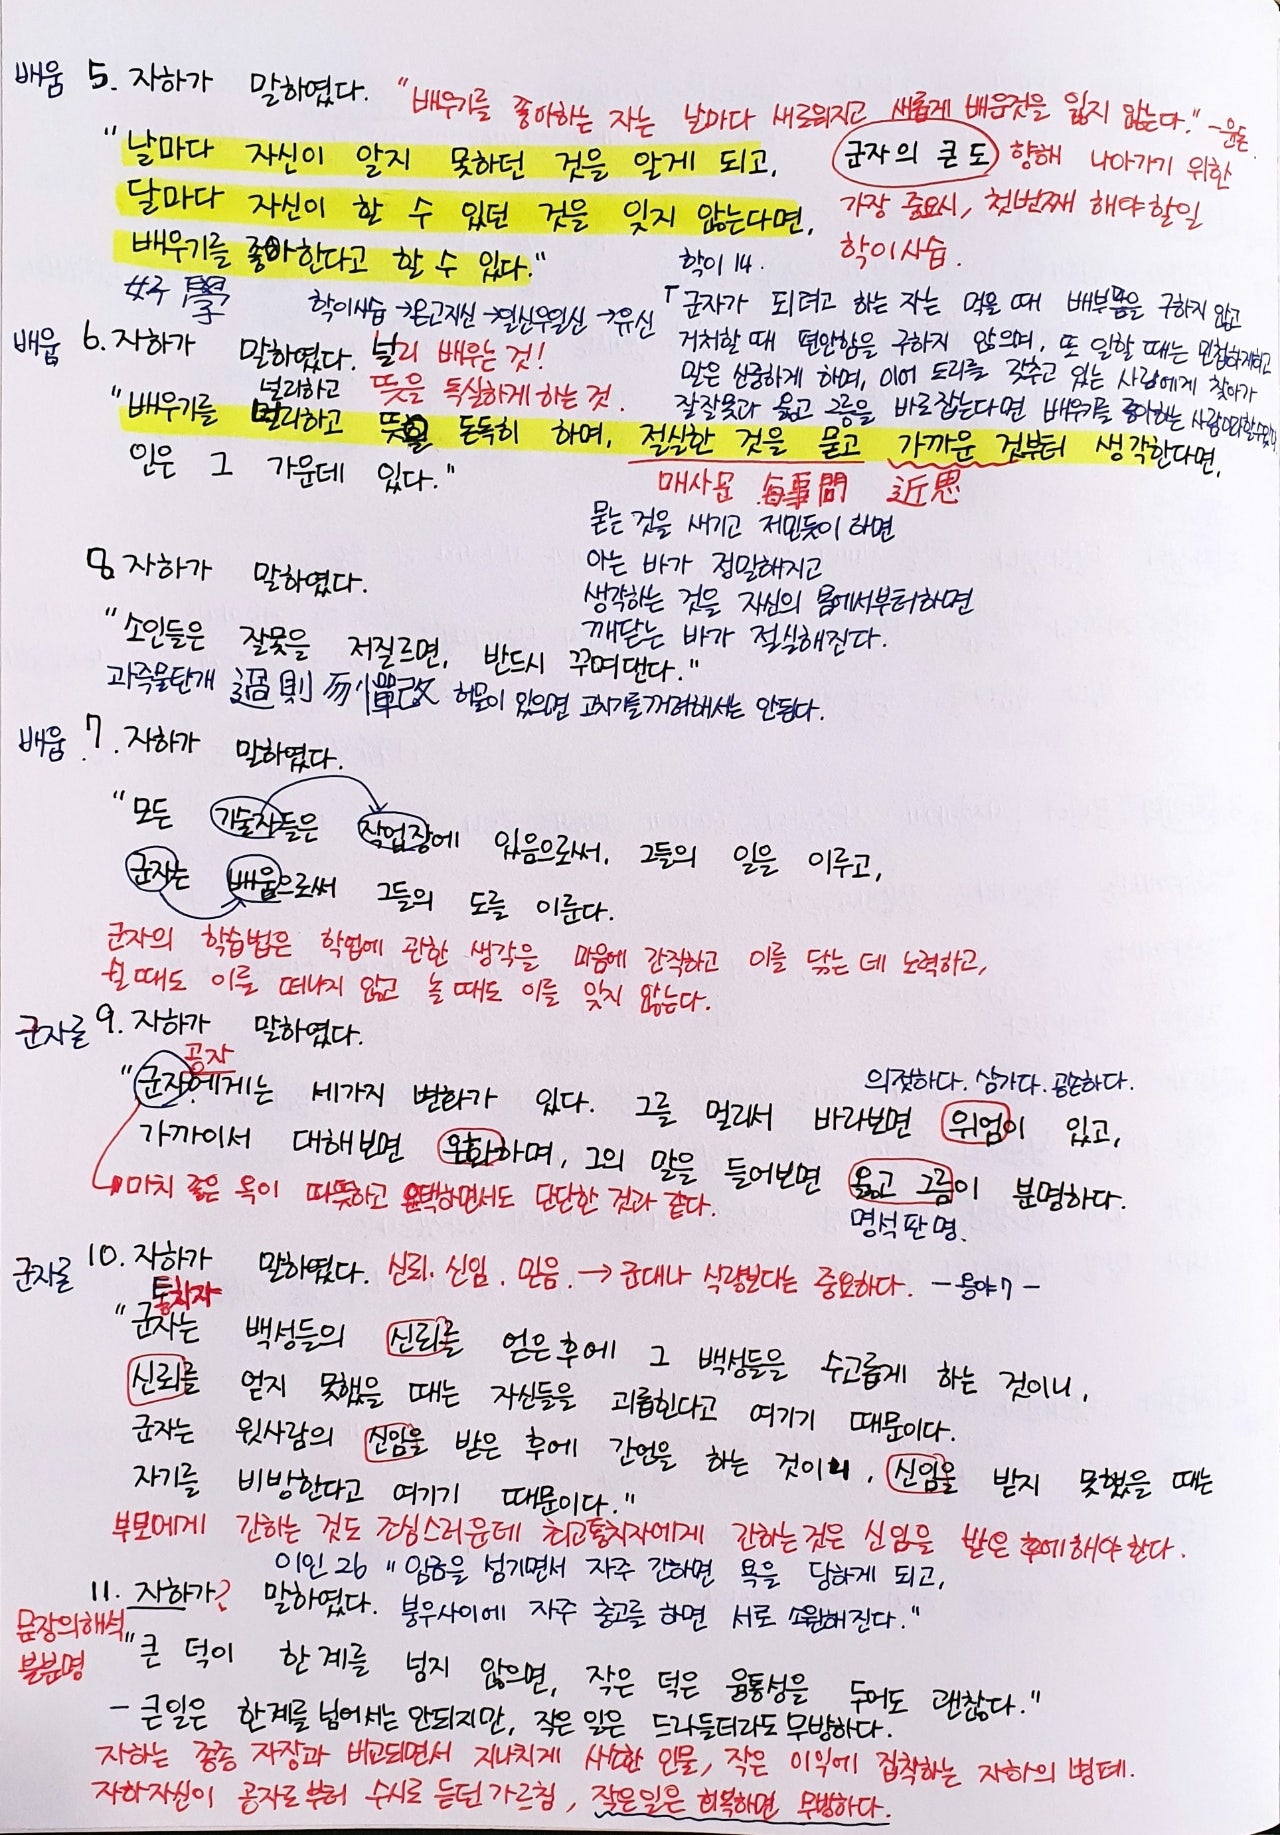 배움 5. 자하가 말하였다. "배우기를 좋아하는 자는 날마다 새로워지고 새롭게 배운것을 잃지 않는다." -윤돈.
"날마다 자신이 알지 못하던 것을 알게 되고,
군자의 큰 도 향해 나아가기 위한
달마다 자신이 할 수 있던 것을 잊지 않는다면,
가장 중요시, 첫번째 해야할일
배우기를 좋아한다고 할 수 있다."
학이사습.
好學
학이사습→온고지신→일신우일신→유신
학이 14.
「군자가 되려고 하는 자는 먹을 때 배부름을 구하지 않고
거처할 때 편안함을 구하지 않으며, 또 일할 때는 민첩하게하고
말은 신중하게 하며, 이어 도리를 갖추고 있는 사람에게 찾아가
잘잘못과 옳고 그름을 바로잡는다면 배우기를 좋아하는 사람이라할수있다
배움 6. 자하가 말하였다. 널리 배우는 것!
널리하고 뜻을 독실하게 하는 것.
"배우기를 널리하고 뜻을 돈독히 하며, 절실한 것을 묻고 가까운 것부터 생각한다면,
인은 그 가운데 있다."
매사문 每事問 近思
묻는 것을 새기고 저민듯이 하면
아는 바가 정밀해지고
생각하는 것을 자신의 몸에서부터하면
깨닫는 바가 절실해진다.
8. 자하가 말하였다.
"소인들은 잘못을 저질르면, 반드시 꾸며댄다."
과즉물탄개 過則勿憚改 허물이 있으면 고치기를꺼려해서는 안된다.
배움 7. 자하가 말하였다.
"모든 기술자들은 작업장에 있음으로써, 그들의 일을 이루고,
군자는 배움으로써 그들의 도를 이룬다.
군자의 학습법은 학업에 관한 생각을 마음에 간직하고 이를 닦는 데 노력하고,
쉴 때도 이를 떠나지 않고 놀 때도 이를 잊지 않는다.
군자를 9. 자하가 말하였다.
공자
"군자에게는 세가지 변화가 있다. 그를 멀리서 바라보면 위엄이 있고,
의젓하다. 삼가다. 공손하다.
가까이서 대해보면 온화하며, 그의 말을 들어보면 옳고 그름이 분명하다.
마치 좋은 옥이 따뜻하고 윤택하면서도 단단한 것과 같다.
명석판명.
군자를 10. 자하가 말하였다. 신뢰. 신임. 믿음. → 군대나 식량보다는 중요하다. -옹야7-
통치자
"군자는 백성들의 신뢰를 얻은후에 그 백성들을 수고롭게 하는 것이니,
신뢰를 얻지 못했을 때는 자신들을 괴롭힌다고 여기기 때문이다.
군자는 윗사람의 신임을 받은 후에 간언을 하는 것이니, 신임을 받지 못했을 때는
자기를 비방한다고 여기기 때문이다."
부모에게 간하는 것도 조심스러운데 최고통치자에게 간하는것은 신임을 받은 후에해야 한다.
이인 26 "임금을 섬기면서 자주 간하면 욕을 당하게 되고,
붕우사이에 자주 충고를 하면 서로 소원해진다."
11. 자하가? 말하였다.
문장의해석 불분명
"큰 덕이 한계를 넘지 않으면, 작은 덕은 융통성을 두어도 괜찮다."
- 큰일은 한계를 넘어서는 안되지만, 작은 일은 드나들더라도무방하다.
자하는 종종 자장과 비교되면서 지나치게 사소한 인물, 작은 이익에 집착하는 자하의 병폐.
자하자신이 공자로부터 수시로 듣던 가르침, 작은일은 회복하면 무방하다.